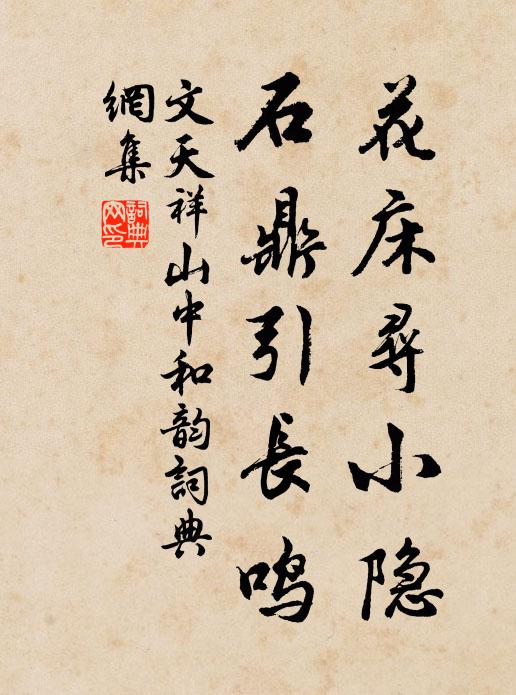 花床尋小隐
石鼎引長鸣
文天祥山中和韵詞典
網集
詞典
网印